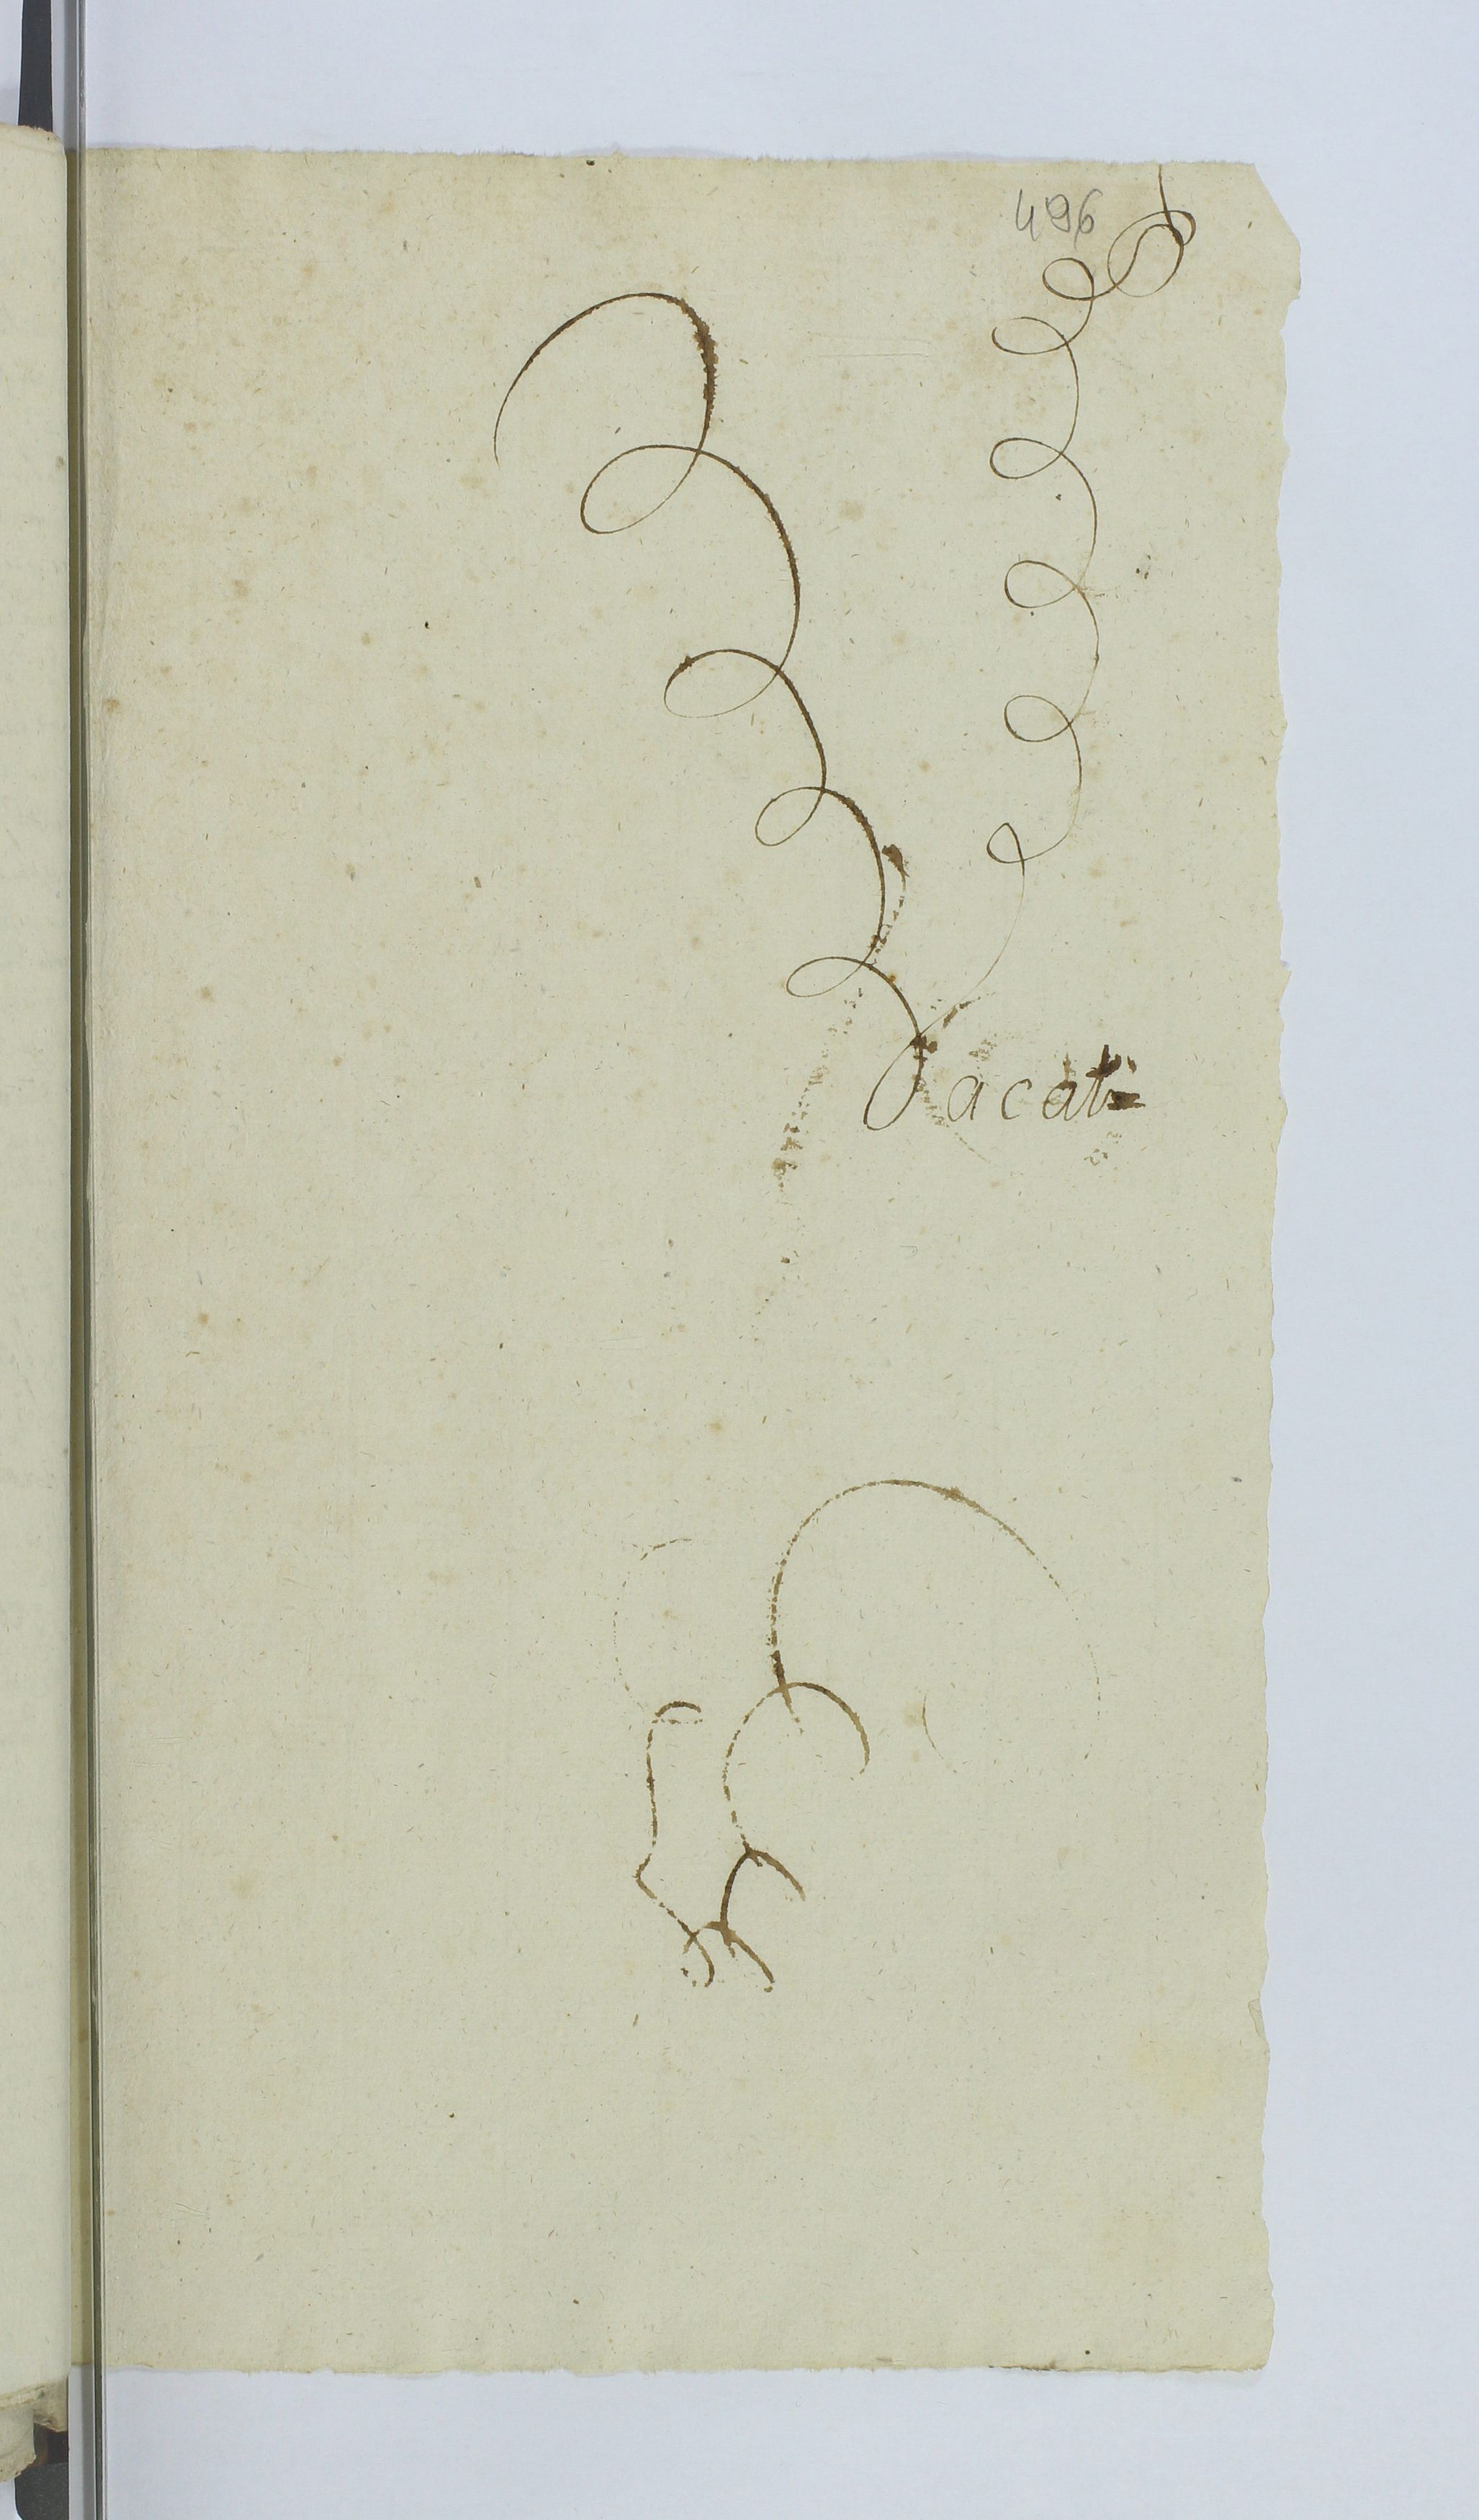 496
Vacat